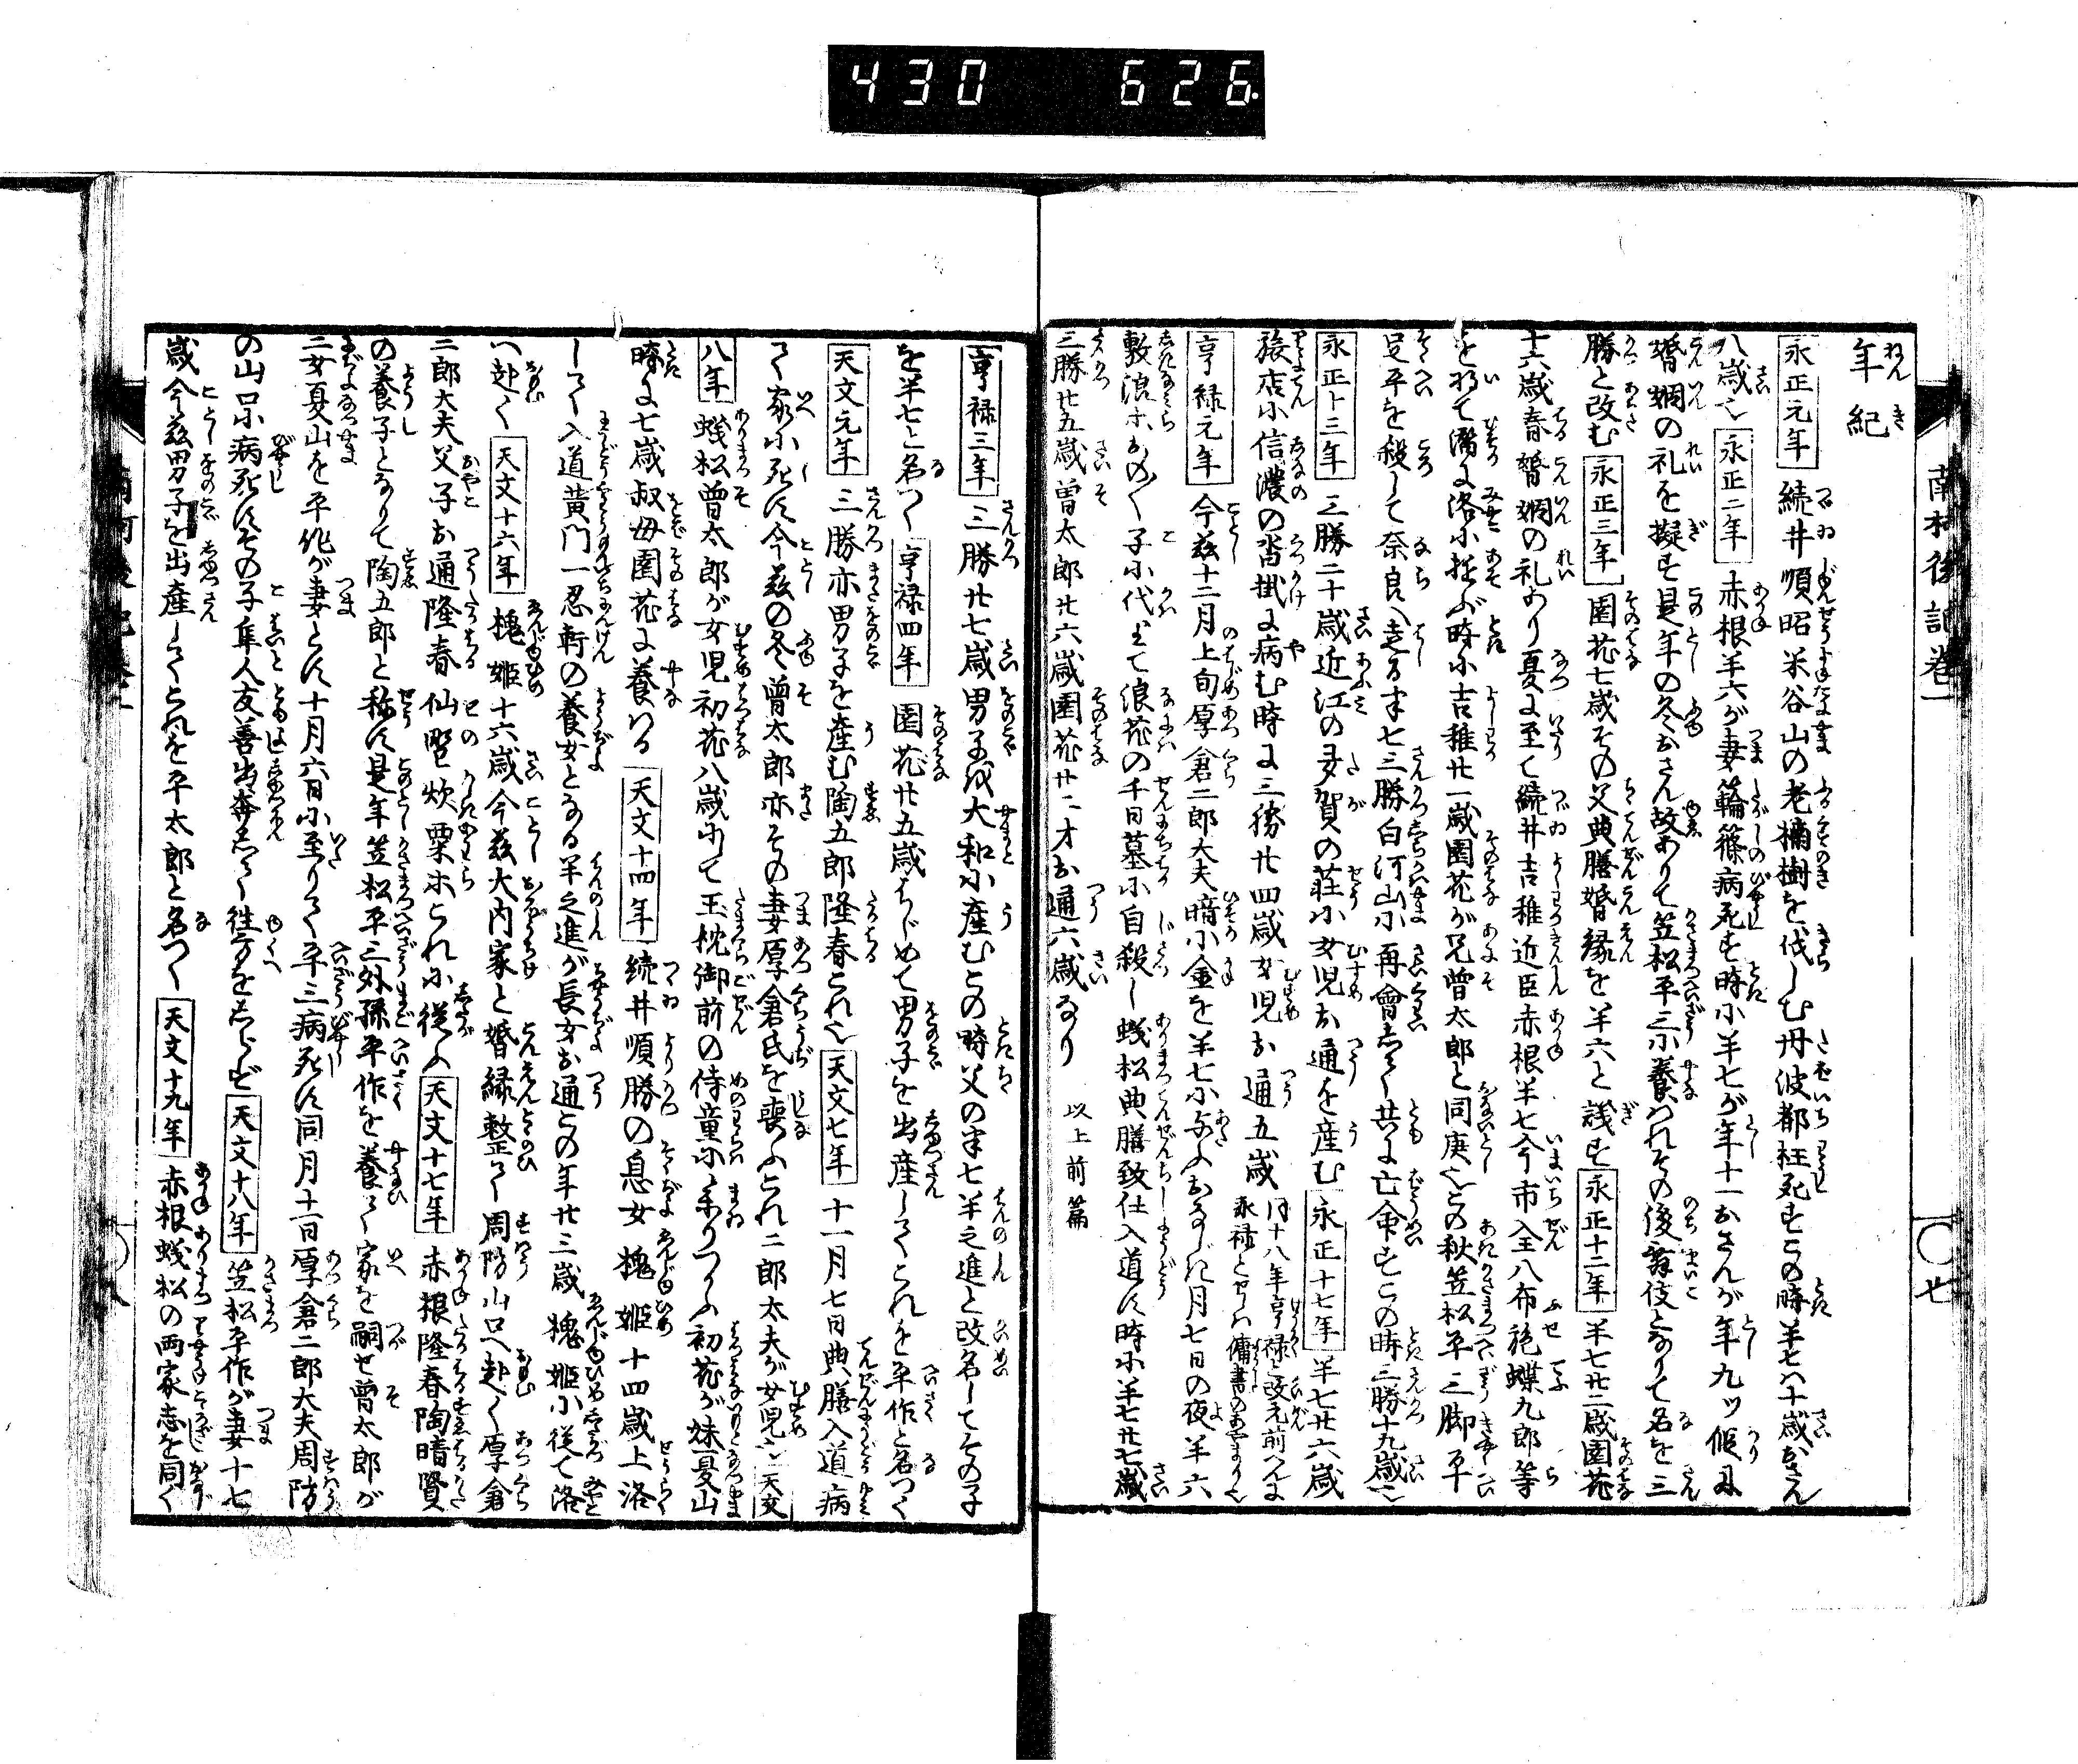 430 626
南柯後記巻一
〇七
年紀
永正元年 続井順昭米谷山の老楠樹を伐しむ丹波都枉死すこの時半七八十歳おさん
八歳也 永正二年 赤根半六が妻輪篠病死す時に半七が年十一おさんが年九ツ仮に
婚姻の礼を擬す是年の冬おさん故ありて笠松平三に養はれその後舞伎となりて名を三
勝と改む 永正三年 園花七歳その父典膳婚縁を半六と議す 永正十二年 半七廿二歳園花
十六歳春婚姻の礼あり夏に至て続井吉稚近臣赤根半七今市全八布施蝶九郎等
を将て潜に洛に遊ぶ時に吉稚廿一歳園花が兄曾太郎と同庚也この秋笠松平三脚平
足平を殺して奈良へ走る半七三勝白河山に再會して共に亡命すこの時三勝十九歳也
永正十三年 三勝二十歳近江の多賀の荘に女児お通を産む 永正十七年 半七廿六歳
旅店に信濃の沓掛に病む時に三勝廿四歳女児お通五歳
享禄元年 今茲十二月上旬厚倉二郎大夫暗に金を半七に与ふおなじ月七日の夜半六
敷浪ホおの〱子に代りて浪花の千日墓に自殺し蟻松典膳致仕入道す時に半七廿七歳
三勝廿五歳曾太郎廿六歳園花廿二才お通六歳なり 以上前篇
享禄三年 三勝廿七歳男子を大和に産むこの時父の半七半之進と改名してその子
を半七と名つく 享禄四年 園花廿五歳はじめて男子を出産してこれを平作と名つく
天文元年 三勝亦男子を産む陶五郎隆春これ也 天文七年 十一月七日典膳入道病
て家に死す今茲の冬曾太郎亦その妻厚倉氏を喪ふこれ二郎太夫が女児也 天文
八年 蟻松曾太郎が女児初花八歳にして玉枕御前の侍童に参りつかふ初花が妹夏山
時に七歳叔母園花に養はる 天文十四年 続井順勝の息女槐姫十四歳上洛
して入道黄門一忍軒の養女となる半之進が長女お通この年廿三歳槐姫に従て洛
へ赴く 天文十六年 槐姫十六歳今茲大内家と婚縁整て周防山口へ赴く厚倉
二郎大夫父子お通隆春仙野炊栗ホこれに従ふ 天文十七年 赤根隆春陶晴賢
の養子となりて陶五郎と称す是年笠松平三外孫平作を養て家を嗣せ曾太郎が
二女夏山を平作が妻とす十月六日に至りて平三病死す同月十一日厚倉二郎大夫周防
の山口に病死すその子隼人友善出奔して往方をしらず 天文十八年 笠松平作が妻十七
歳今茲男子を出産してこれを平太郎と名つく 天文十九年 赤根蟻松の両家志を同く